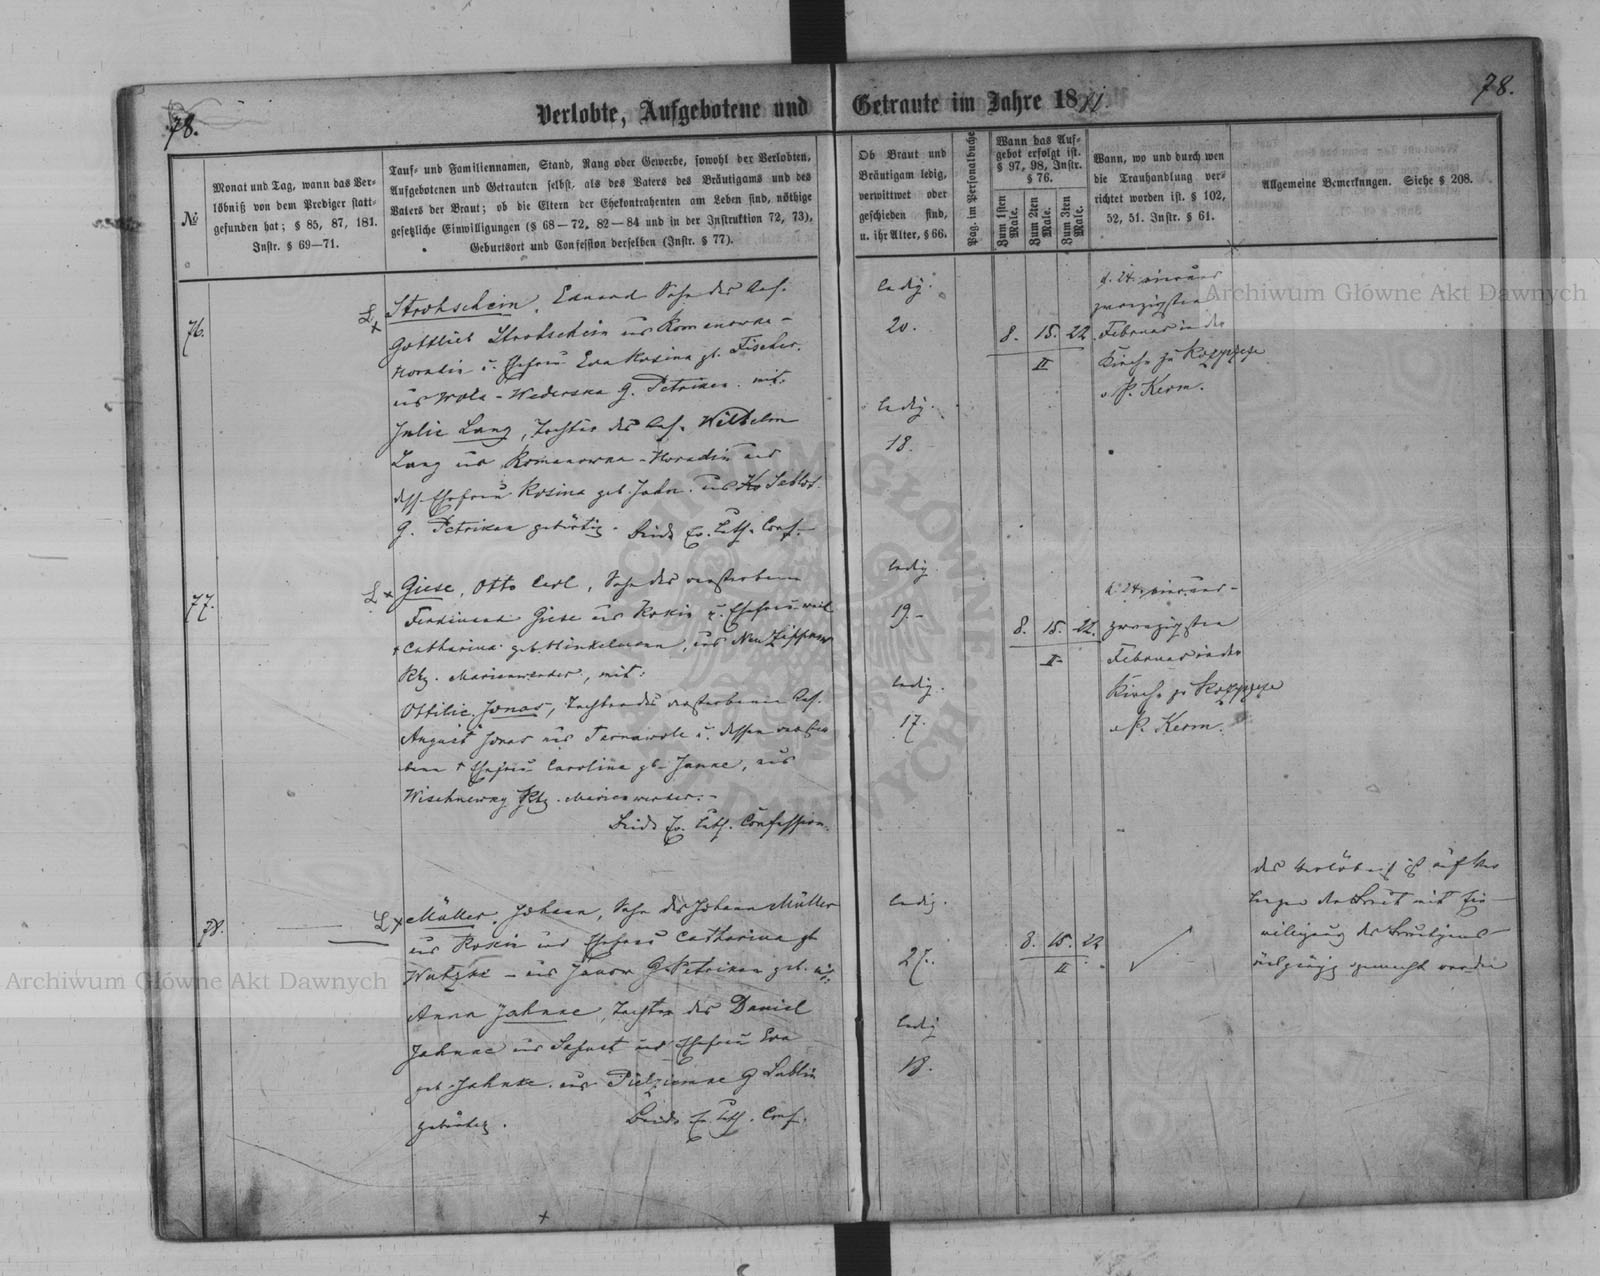 78.
Verlobte, Aufgebotene und Getraute im Jahre 1881
78.
№
Monat und Tag, wann das Ver-
löbniß von dem Prediger statt-
gefunden hat; § 85, 87, 181.
Instr. § 69—71.
Tauf- und Familiennamen, Stand, Rang oder Gewerbe, sowohl der Verlobten,
Aufgebotenen und Getrauten selbst, als des Vaters des Bräutigams und des
Vaters der Braut; ob die Eltern der Ehekontrahenten am Leben sind, nöthige
gesetzliche Einwilligungen (§ 68—72, 82—84 und in der Instruktion 72, 73),
Geburtsort und Confession derselben (Instr. § 77).
Ob Braut und
Bräutigam ledig,
verwittwet oder
geschieden sind,
u. ihr Alter, § 66.
Pag. im Personalbuche
Wann das Auf-
gebot erfolgt ist.
§ 97, 98, Instr.
§ 76.
Zum 1sten Male.
Zum 2ten Male.
Zum 3ten Male.
Wann, wo und durch wen
die Trauhandlung ver-
richtet worden ist. § 102,
52, 51. Instr. § 61.
Allgemeine Bemerkungen. Siehe § 208.
76.
Strohschein, Eduard Sohn des
Gottlieb Strohschein aus Romanowka-
Horodin u. Ehefrau Eva Rosina gb. Fischer.
aus Wola-Wederska G. Petrikau. mit:
Julie Lang, Tochter des Wilhelm
Lang aus Romanowka-Horodin und
dess. Ehefrau Rosina geb. Jahn. aus
G. Petrikau gebürtig. Beide Ev. Luth. Conf.
ledig.
20.
ledig.
18.
8. 15. 22
II
d. 24. vierund
zwanzigsten
Februar in der
Kirche zu Rozyszcze
P. Kerm.
77.
Giese, Otto Carl, Sohn des verstorbenen
Ferdinand Giese aus Rokin u. Ehefrau weil
Catharina geb. Hinkelmann, aus Neu
Rbz. Marienwerder, mit:
Ottilie Jonas, Tochter des verstorbenen
August Jonas aus Tarnawola u. dessen verstor-
benen † Ehefrau Carolina gb. Janke, aus
Rbz. Marienwerder.-
Beide Ev. Luth. Confession.
ledig.
19.-
ledig.
17.
8. 15. 22.
II
d. 24. vierund-
zwanzigsten
Februar in der
Kirche zu Rozyszcze
P. Kerm.
78.
Müller, Johann, Sohn des Johann Müller
aus Rokin und Ehefrau Catharina gb
aus Janow G. Petrikau geb. mit:
Anna Jahnke, Tochter des Daniel
Jahnke aus und Ehefrau Eva
geb. Jahnke. aus G Lublin
gebürtig. Beide Ev. Luth. Conf.
ledig.
27.
ledig
18.
8. 15. 22
II
das Verlöbniß ist auf Ver-
langen der Braut mit Ein-
willigung des Bräutigams
rückgängig gemacht worden
Archiwum Główne Akt Dawnych
Archiwum Główne Akt Dawnych